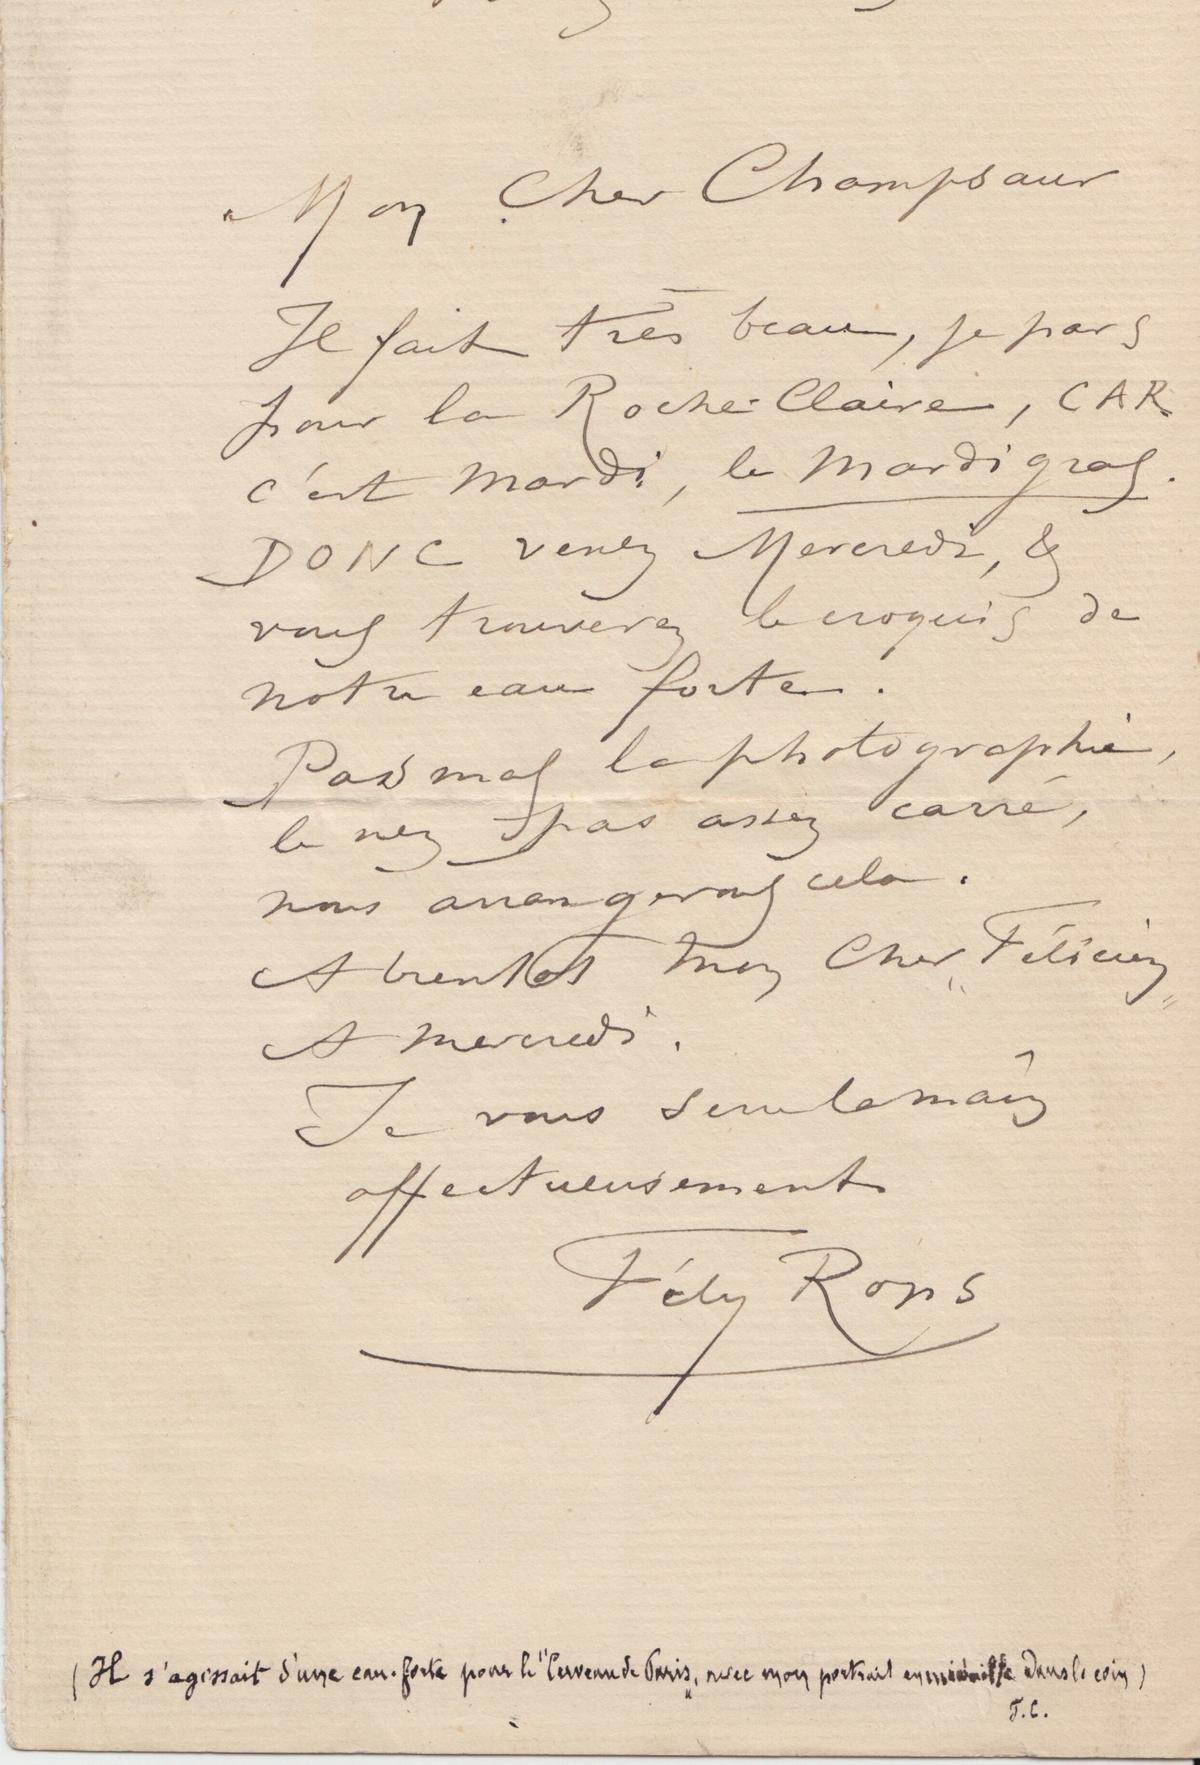 Mon Cher Champsaur
Il fait très beau, je pars
pour la Roche-Claire, CAR
c'est Mardi, le Mardi gras.
DONC venez Mercredi, &
vous trouverez le croquis de
notre eau forte.
Pas mal la photographie,
le nez pas assez carré,
nous arrangerons cela.
A bientot mon Cher "Félicien"
A mercredi.
Je vous serre la main
affectueusement
Fély Rops
(Il s'agissait d'une eau-forte pour le "Cerveau de Paris", avec mon portrait en médaille dans le coin)
F.C.